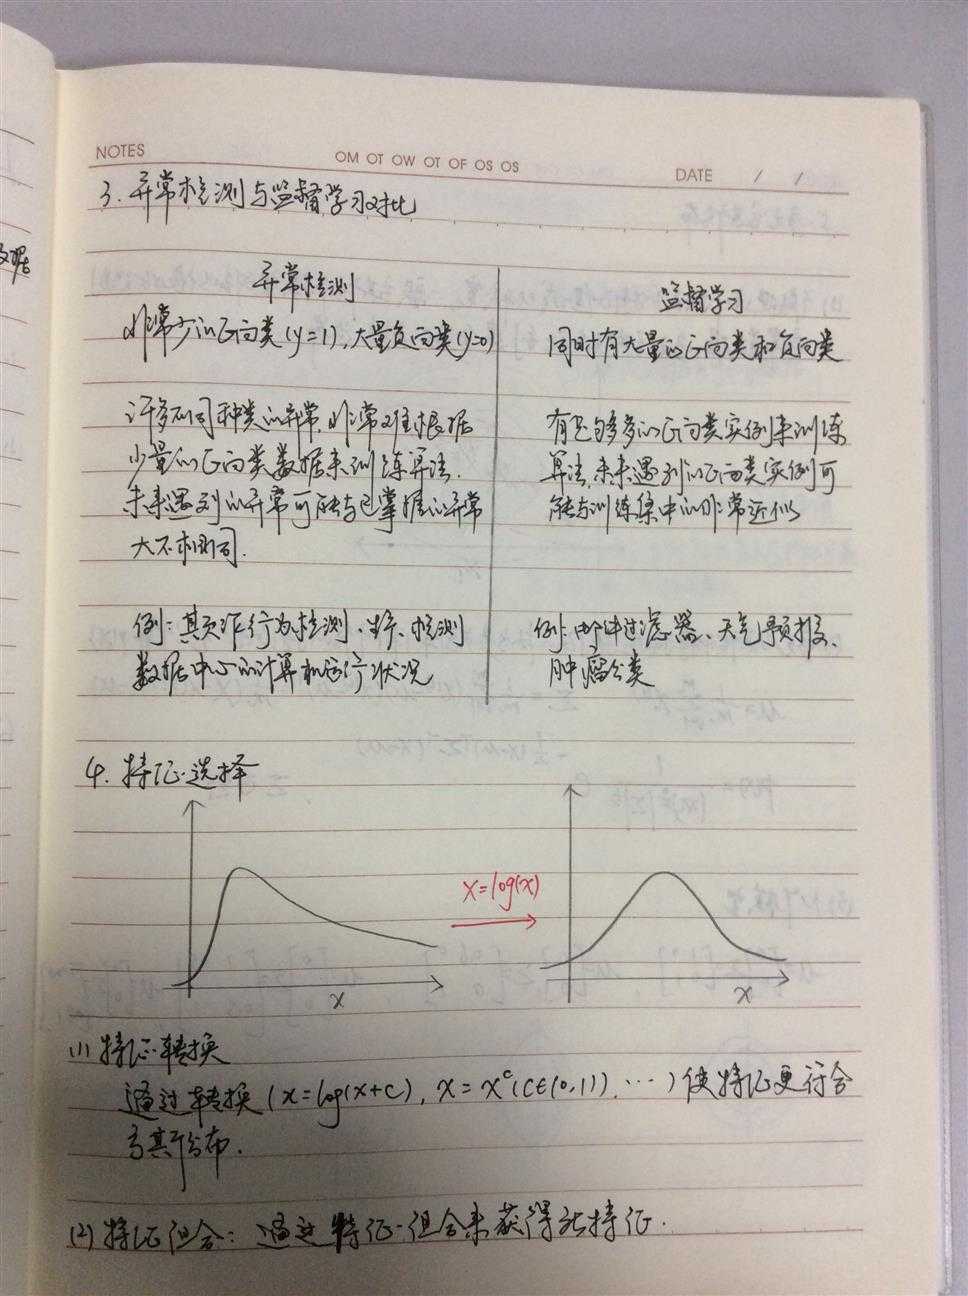 NOTES
OM OT OW OT OF OS OS
DATE / /
3. 异常检测与监督学习对比
异常检测
非常少的正向类(y=1), 大量负向类(y=0)
许多不同种类的异常, 非常难根据
少量的正向类数据来训练算法.
未来遇到的异常可能与已掌握的异常
大不相同.
例: 欺诈行为检测、生产、检测
数据中心的计算机运行状况
监督学习
同时有大量的正向类和负向类
有足够多的正向类实例来训练
算法, 未来遇到的正向类实例可
能与训练集中的非常近似
例: 邮件过滤器、天气预报、
肿瘤分类
4. 特征选择
x=log(x)
x
x
(1) 特征转换
通过转换(x=log(x+c), x=x^c(c∈(0,1)) ...) 使特征更符合
高斯分布.
(2) 特征组合: 通过特征组合来获得新特征.